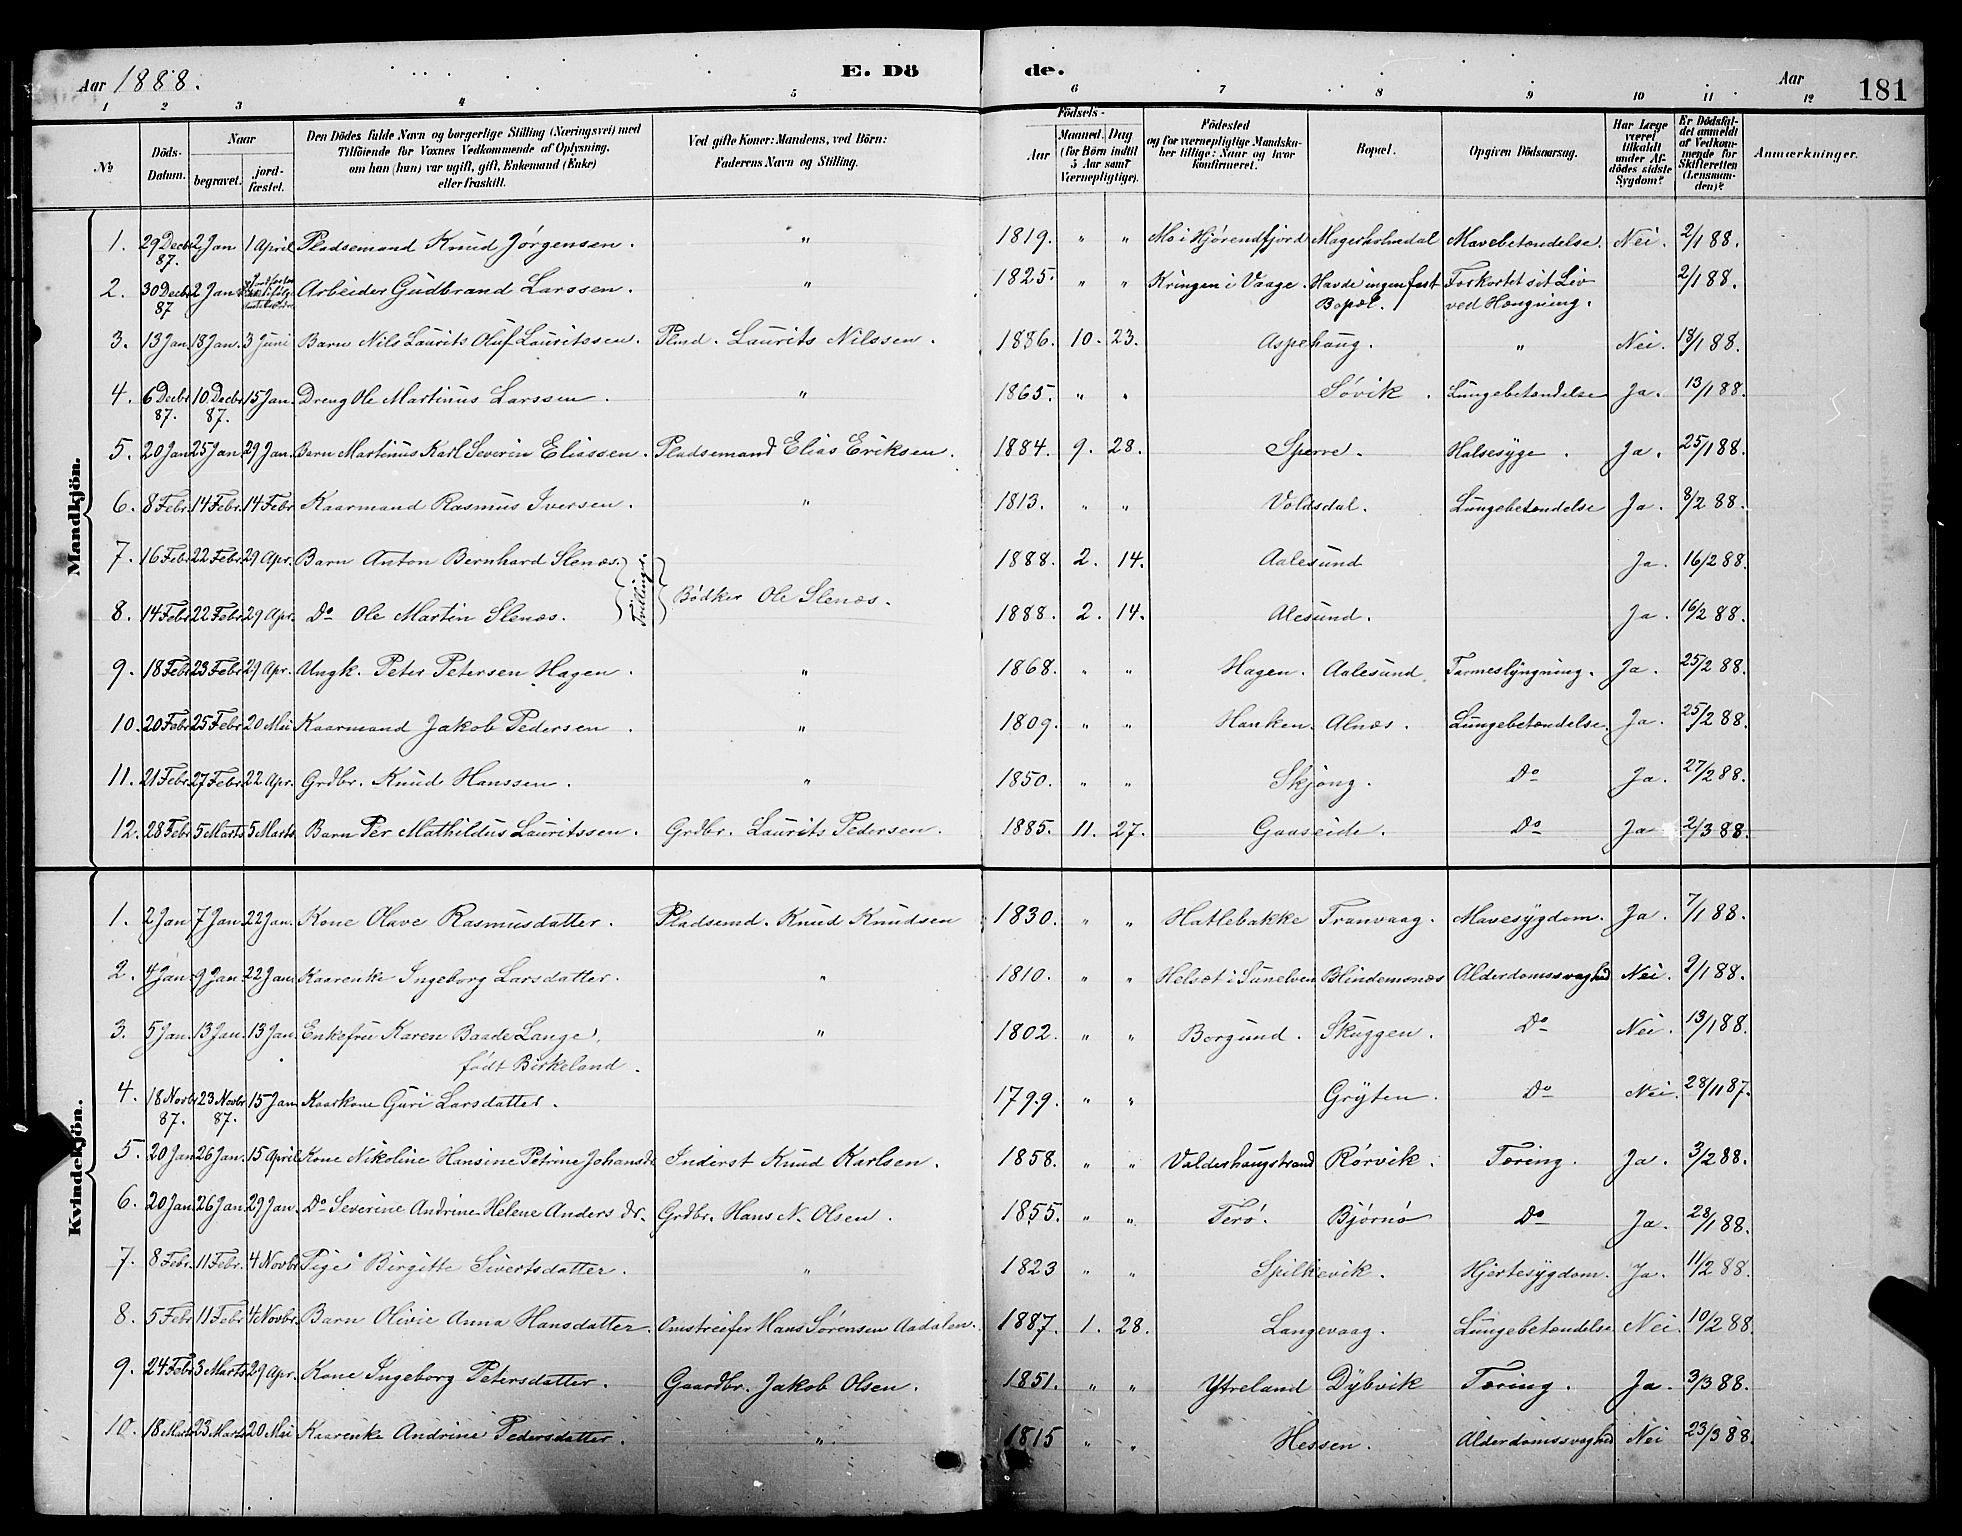 Aar 1888. E. Döde. Aar 181
1 2 3 4 5 6 7 8 9 10 11 12
No
Döds-Datum.
Naar
begravet.
jordfæstet.
Den Dödes fulde Navn og borgerlige Stilling (Næringsvei) med
Tilföiende for Voxnes Vedkommende af Oplysning,
om han (hun) var ugift, gift, Enkemand (Enke)
eller fraskilt.
Ved gifte Koner: Mandens, ved Börn:
Faderens Navn og Stilling.
Födsels-
Aar
Maaned. Dag
(for Börn indtil
5 Aar samt
Værnepligtige).
Födested
og for værnepligtige Mandskaber tillige: Naar og hvor
konfirmeret.
Bopæl.
Opgiven Dödsaarsag.
Har Læge
været
tilkaldt
under Afdödes sidste
Sygdom?
Er Dödsfaldet anmeldt
af Vedkommende for
Skifteretten
(Lensmanden)?
Anmærkninger.
Mandkjön.
1. 29 Decbr 87. 2 Jan 1 April Pladsemand Knud Jørgensen. " 1819. " " Mo i Hjørendfjord Magerholmdal Mavebetændelse. Nei. 2/1 88.
2. 30 Decbr 87 2 Jan Arbeider Gudbrand Larssen. " 1825. " " Kringen i Vaage. Havde ingen fast Bopæl. Forkortet sit Liv ved Hængning. 2/1 88.
3. 13 Jan 18 Jan. 3 Juni Barn Nils Laurits Oluf Lauritssen. Plmd. Laurits Nilssen. 1886. 10. 23. Aspehaug. " Nei. 18/1 88.
4. 6 Decbr 87. 10 Decbr 87. 15 Jan. Dreng Ole Martinus Larssen. " 1865. " " Søvik. Lungebetændelse Ja. 13/1 88.
5. 20 Jan 25 Jan 29 Jan. Barn Martinus Karl Severin Eliassen. Pladsemand Elias Eriksen. 1884. 9. 28. Sperre. Halsesyge. Ja. 25/1 88.
6. 8 Febr. 14 Febr. 14 Febr Kaarmand Rasmus Iversen. " 1813. " " Voldsdal. Lungebetændelse Ja. 8/2 88.
7. 16 Febr 22 Febr. 29 Apr. Barn Anton Bernhard Slenæs. Tvillinger 1888. 2. 14. Aalesund Ja. 16/2 88.
Bødker Ole Slenæs.
8. 14 Febr 22 Febr. 29 Apr. Do Ole Martin Slenæs. 1888. 2. 14. Alesund. Ja. 16/2 88.
9. 18 Febr 23 Febr 29 Apr. Ungk. Peter Petersen Hagen. " 1868. " " Hagen. Aalesund. Tarmeslyngning. Ja. 25/2 88.
10. 20 Febr 25 Febr. 20 Mai Kaarmand Jakob Pedersen. " 1809. " " Hanken. Alnæs. Lungebetændelse. Ja. 25/2 88.
11. 21 Febr. 27 Febr. 22 Apr. Grdbr. Knud Hanssen. " 1850. " " Skjong. Do Ja. 27/2 88.
12. 28 Febr. 5 Marts 5 Marts. Barn Per Mathildus Lauritssen. Grdbr. Laurits Pedersen. 1885. 11. 27. Gaaseide. Do Ja 2/3 88.
Kvindekjön.
1. 2 Jan 7 Jan 22 Jan. Kone Olave Rasmusdatter. Pladsemd. Knud Knudsen 1830. " " Hatlebakke Tranvaag. Mavesygdom. Ja. 7/1 88.
2. 4 Jan 9 Jan 22 Jan. Kaarenke Ingeborg Larsdatter. " 1810. " " Helset i Sunelven Blindemsnæs Alderdomssvaghed Nei. 9/1 88.
3. 5 Jan. 13 Jan. 13 Jan. Enkefru Karen Baade Lange, født Birkeland. " 1802. " " Borgund. Skuggen. Do Nei. 13/1 88.
4. 18 Novbr 87. 23 Novbr 87. 15 Jan Kaarkone Guri Larsdatter. 1799. " " Gryten. Do Nei. 28/11 87.
5. 20 Jan 26 Jan. 15 April Kone Nikoline Hansine Petrine Johansd. Inderst Knud Karlsen. 1858. " " Valderhaugstrand Rørvik. Tæring. Ja. 3/2 88.
6. 20 Jan 26 Jan 29 Jan. Do Severine Andrine Helene Anders dr. Grdbr. Hans N. Olsen. 1855. " " Terø. Bjørnø Do Ja. 28/1 88.
7. 8 Febr. 11 Febr. 4 Novbr Pige Birgitte Sivertsdatter. " 1823 " " Spilkevik. Hjertesygdom. Ja. 11/2 88.
8. 5 Febr 11 Febr 4 Novbr. Barn Olivie Anna Hansdatter. Omstreifer Hans Sørensen Aadalen. 1887. 1. 28. Langevaag. Lungebetændelse Nei. 10/2 88.
9. 24 Febr 3 Marts 29 Apr. Kone Ingeborg Petersdatter. Gaardbr. Jakob Olsen. 1851. " " Ytreland Dybvik Tæring. Ja. 3/3 88.
10. 18 Marts 23 Marts 20 Mai Kaarenke Andrine Pedersdatter. " 1815 " " Hessen. Alderdomssvaghed Nei 23/3 88.